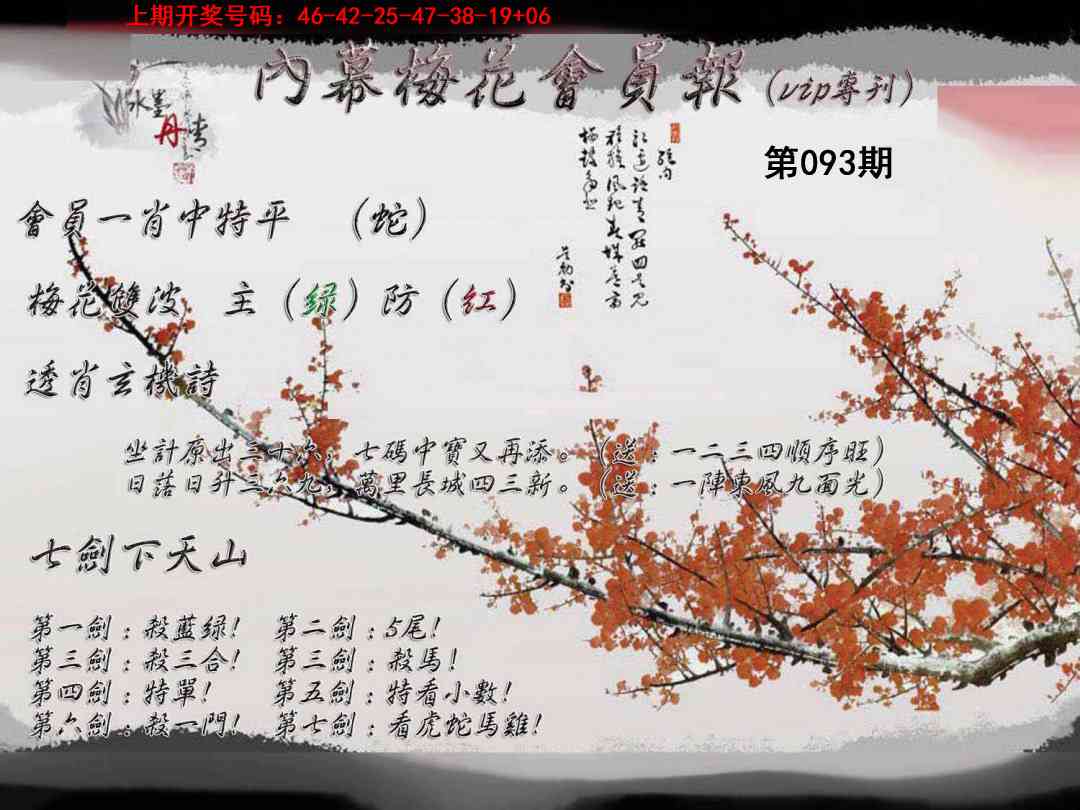 上期开奖号码：46-42-25-47-38-19+06
內幕梅花會員報（vip專刊）
水墨
丹青
第093期
會員一肖中特平　（蛇）
梅花雙波　主（绿）防（红）
透肖玄機詩
坐計原出三十次，七碼中寶又再添。（送：一二三四順序旺）
日落日升三六九，萬里長城四三新。（送：一陣東風九面光）
七劍下天山
第一劍：殺藍绿！　第二劍：5尾！
第三劍：殺三合！　第三劍：殺馬！
第四劍：特單！　第五劍：特看小數！
第六劍：殺一門！　第七劍：看虎蛇馬雞！